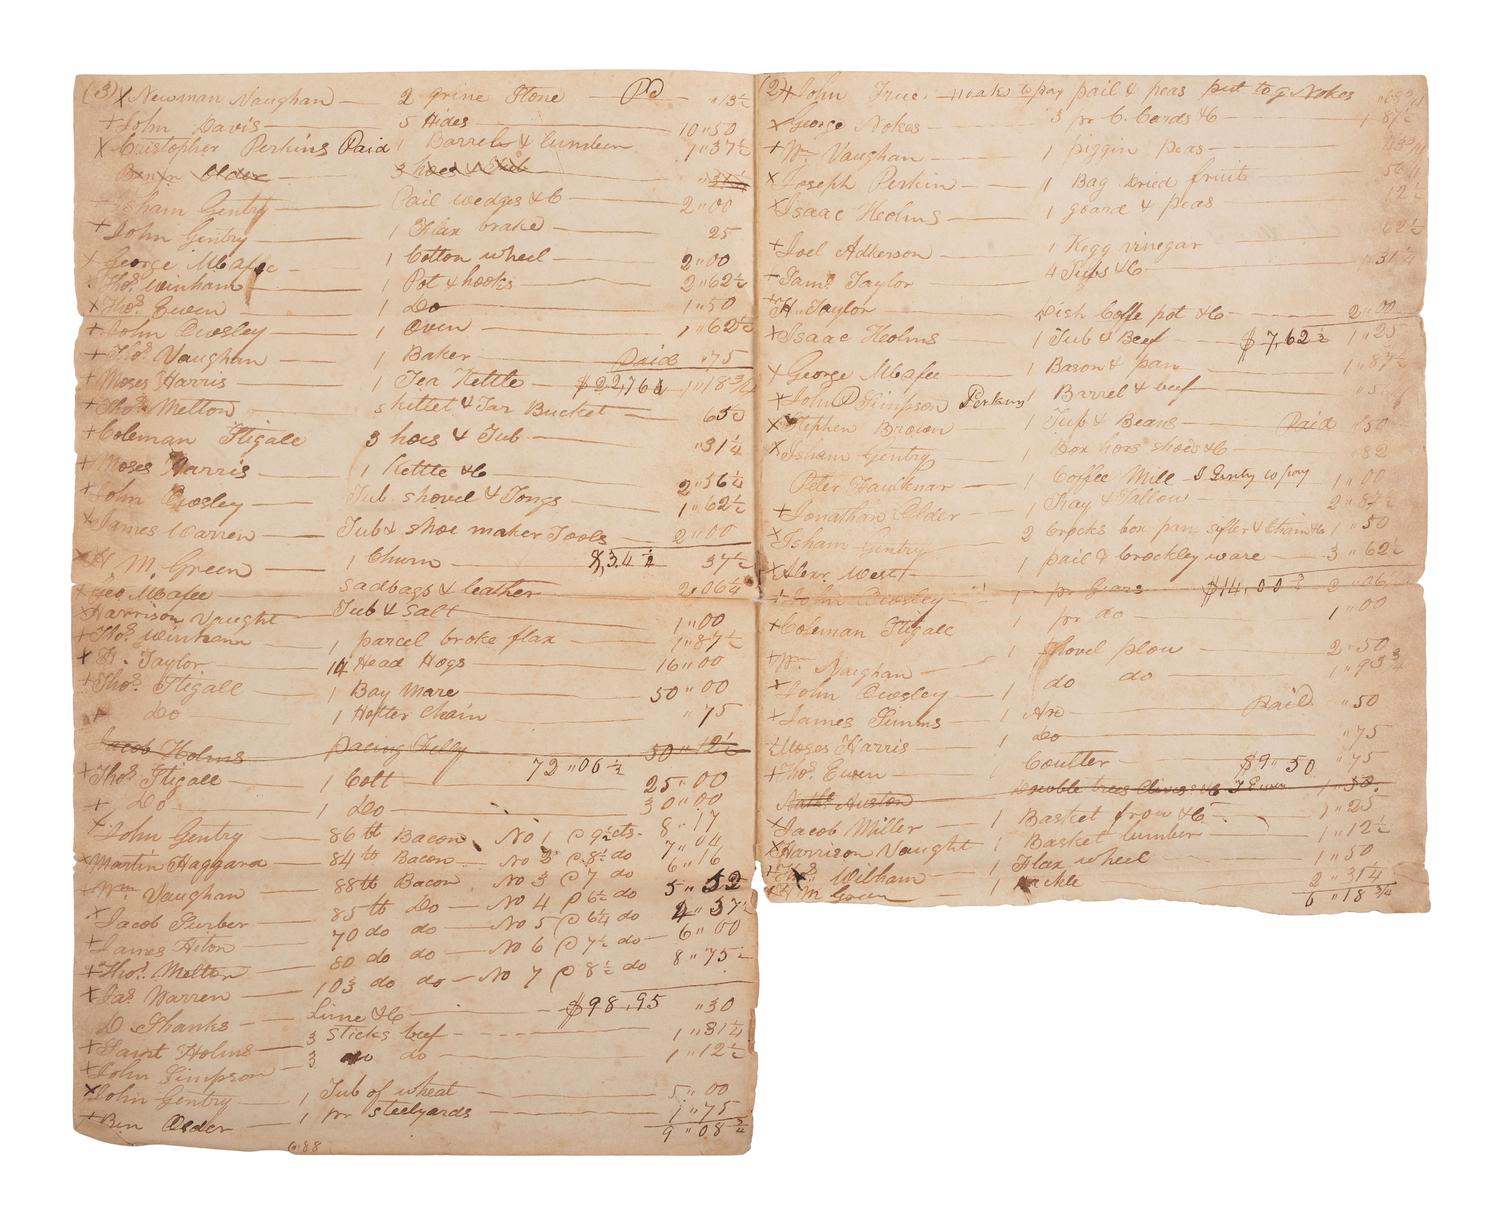 (3) x Newman Vaughan — 2 grine Stone — Pd — "13½
+ John Davis — 5 Hides — 10"50
x Cristopher Perkins Paid 1 Barrel & lumber 1"37½
Benn Elder 3 hoes & Tub "31¼
Isham Gentry — Pail wedges &c — 2"00
+ John Gentry — 1 Flax brake — 25
x George McAfee 1 Cotton wheel — 2"00
Thos. Winham 1 Pot & hooks — 2"62½
x Thos. Ewen — 1 Do — 1"50
+ John Owsley — 1 Oven — 1"62½
+ Thos. Vaughan — 1 Baker Paid "75
+ Moses Harris — 1 Tea Kettle — $22,76¼ 1"18¾
+ Thos. Melton skillet & Tar Bucket — 65
+ Coleman Stigall 3 hoes & Tub — "31¼
+ Moses Harris — 1 Kettle &c — 2"56¼
+ John Owsley Tub, shovel & Tongs — 1"62½
x James Warren — Tub & shoe maker Tools 2"00
x M. Green — 1 Churn 37½
x Geo McAfee — sadbags & leather 2.06¼
x Harrison Vaught — Tub & Salt — 1"00
+ Thos. Winham — 1 parcel broke flax 1"87½
x H. Taylor — 14 Head Hogs — 16"00
+ Thos. Stigall — 1 Bay Mare — 50"00
+ Do — 1 Holter Chain "75
Jacob Holms pacing Filly 50"12½
Thos. Stigall — 1 Colt 72"06½ 25"00
+ Do — 1 Do — 30"00
x John Gentry — 86 lb Bacon No 1 @ 9½ cts. 8"17
x Martin Haggard — 84 lb Bacon No 2 @ 8½ do 7"04
+ Wm Vaughan — 88 lb Bacon No 3 @ 7 do 6"16
x Jacob Surber — 85 lb Do — No 4 @ 6½ do 5"52
+ James Hilton — 70 do do — No 5 @ 6¼ do 4"37½
+ Thos. Melton — 80 do do — No 6 @ 7½ do — 6"00
x Jas. Warren — 103 do do — No 7 @ 8½ do 8"75½
D. Shanks — Lime &c — $98,95 "30
+ Saml Holms — 3 sticks beef — 1"31¼
+ John Simpson — 3 do do — 1"12½
x John Gentry — 1 Tub of wheat — 5"00
+ Ben Elder — 1 pr steelyards — 1"75
9"08¾
688
(2) + John True — pail & peas put to G Nokes "68¾
x George Nokes — 3 pr C. Cards &c — 1"87½
+ Wm. Vaughan — 1 piggin peas — "43¾
x Joseph Perkin — 1 Bag Dried fruit — 56¼
x Isaac Heolms — 1 goard & peas 12½
+ Joel Adkerson — 1 Kegg vinegar — 62½
+ Saml Taylor — 4 Tubs &c — 31¼
H. Taylor — Dish Coffe pot &c — 2"00
x Isaac Heolms 1 Tub & Beef — $7,62½ 1"25
x George McAfee — 1 Bason & pan — 1"87½
+ John Simpson Perkins 1 Barrel & beef
x Stephen Brown — 1 Tub & Beans — Paid "50
x Isham Gentry — 1 Box hors shoes &c 82
Peter Faulkner — 1 Coffee Mill I Gentry to pay 1"00
+ Jonathan Elder — 1 Tray & Tallow — 2"87½
x Isham Gentry — 2 Crocks box pan sifter & Chain &c 1"50
x Alexr. West — 1 pail & Crockley ware — 3"62½
+ John Owsley — 1 pr Gears $14,00 2"06¼
+ Coleman Stigall 1 pr do — 1"00
+ Wm Vaughan — 1 Shovel plow — 2"50
x John Owsley — 1 do do — 1"93¾
+ James Simms — 1 Are Paid "50
Moses Harris — 1 Do — "75
+ Thos. Ewen — 1 Coulter — $9"50 "75
Nathl Auston — Double trees Clivises &c T Ewen 1"50.
x Jacob Miller — 1 Basket frow &c — 1"25
x Harrison Vaught 1 Basket lumber 1"12½
Wilham — 1 Flax wheel — 1"50
M Green — 1 Hackle — 2"31¼
6"18¾